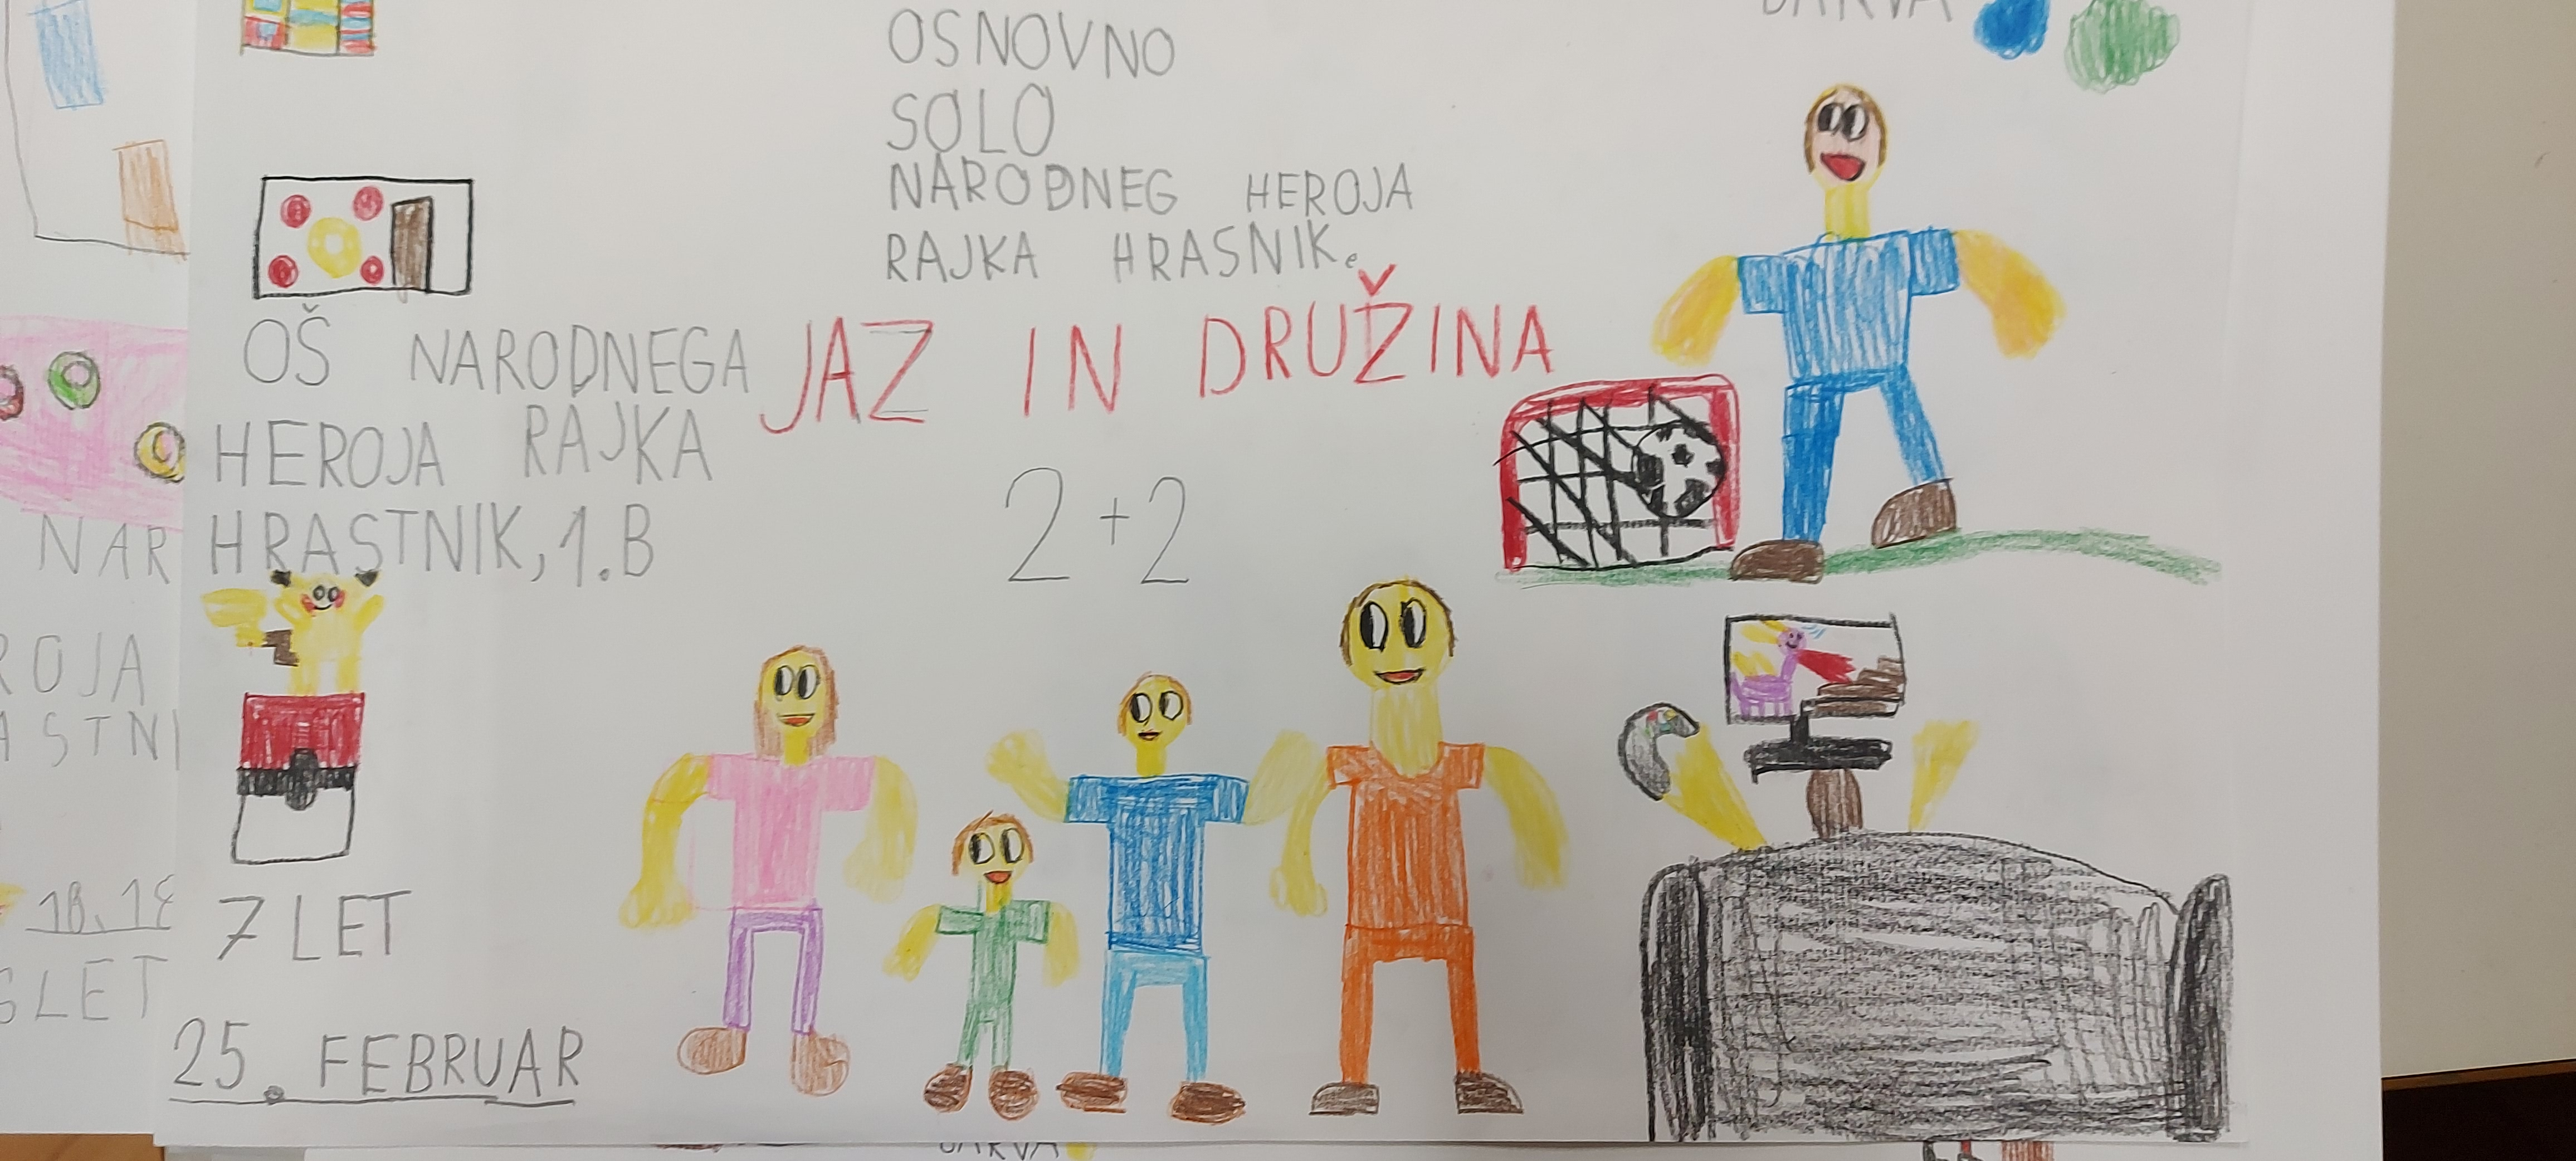 OSNOVNO
SOLO
NARODNEG HEROJA
RAJKA HRASNIK.
OŠ NARODNEGA
HEROJA RAJKA
HRASTNIK, 1.B
JAZ IN DRUŽINA
2+2
7 LET
25. FEBRUAR
NAR
ROJA
ASTNI
LET